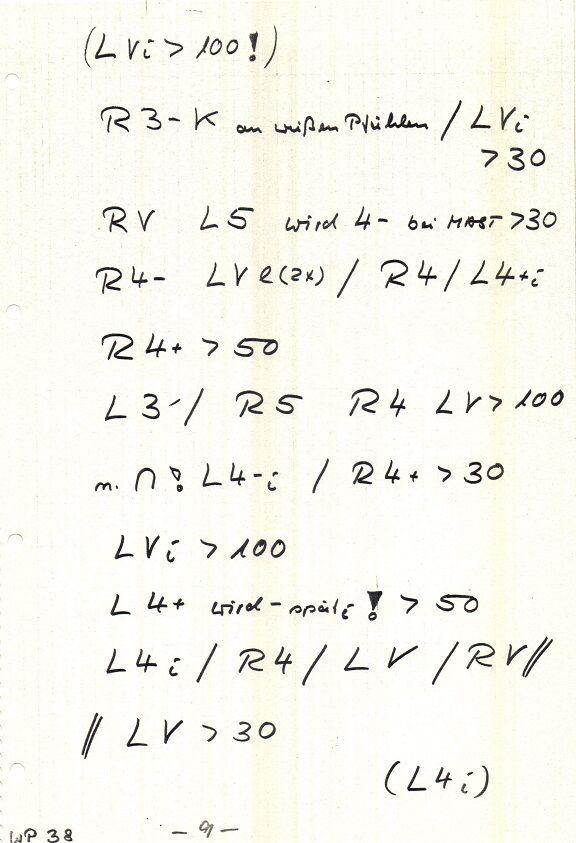 (L Vi > 100!)
R 3- K an weißen Pfählen / L Vi
> 30
RV L5 wird 4- bei MAST > 30
R4- LV e (2x) / R4 / L4+i
R4+ > 50
L3-/ R5 R4 LV > 100
n. ∩ ! L4-i / R4+ > 30
L Vi > 100
L 4+ wird - spät i ! > 50
L4i / R4 / LV / RV //
// LV > 30
(L4i)
WP 38 - 9 -